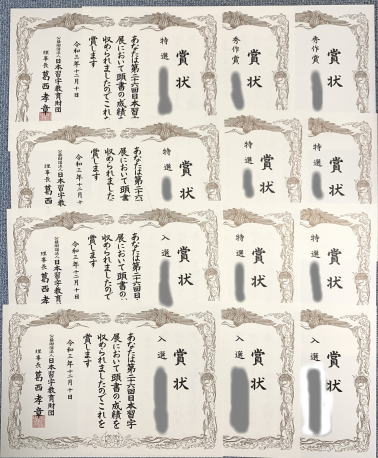 賞状
秀作賞
賞状
秀作賞
賞状
特選
あなたは第二十六回日本習字
展において頭書の成績を
収められましたのでこれを
賞します
令和三年十二月十日
公益財団法人日本習字教育財団
理事長 葛西孝章
賞状
特選
賞状
特選
賞状
特選
あなたは第二十六
展において頭書
収められました
賞します
令和三年十二月十
公益財団法人日本習字教
理事長 葛西
賞状
特選
賞状
特選
賞状
入選
あなたは第二十六回日
展において頭書の
収められましたので
賞します
令和三年十二月十日
公益財団法人日本習字教育
理事長 葛西
賞状
入選
賞状
入選
賞状
入選
あなたは第二十六回日本習字
展において頭書の成績を
収められましたのでこれを
賞します
令和三年十二月十日
公益財団法人日本習字教育財団
理事長 葛西孝章